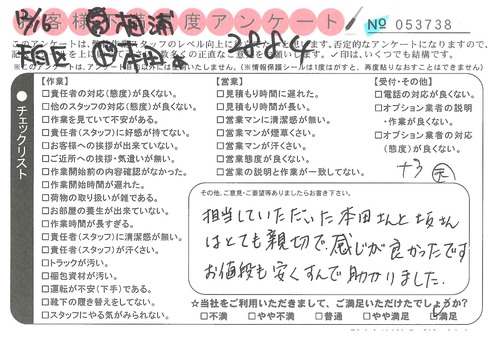 お客様満足度アンケート
№ 053738
12/6
このアンケートは、
スタッフのレベル向上に
否定的なアンケートになりますので、
✓印は、いくつでも結構です。
(※情報保護シールは1度はがすと、再度貼りなおすことはできません)
チェックリスト
【作業】
□責任者の対応(態度)が良くない。
□他のスタッフの対応(態度)が良くない。
□作業を見ていて不安がある。
□責任者(スタッフ)に好感が持てない。
□お客様への挨拶が出来ていない。
□ご近所への挨拶・気遣いが無い。
□作業開始前の内容確認がなかった。
□作業開始時間が遅れた。
□荷物の取り扱いが雑である。
□お部屋の養生が出来ていない。
□作業時間が長すぎる。
□責任者(スタッフ)に清潔感が無い。
□責任者(スタッフ)が汗くさい。
□トラックが汚い。
□梱包資材が汚い。
□運転が不安(下手)である。
□靴下の履き替えをしてない。
□スタッフにやる気がみられない。
【営業】
□見積もり時間に遅れた。
□見積もり時間が長い。
□営業マンに清潔感が無い。
□営業マンが煙草くさい。
□営業マンが汗くさい。
□営業態度が良くない。
□営業の説明と作業が一致してない。
【受付・その他】
□電話の対応が良くない。
□オプション業者の説明
・作業が良くない。
□オプション業者の対応
(態度)が良くない。
その他、ご意見・ご要望等ありましたらお書き下さい。
担当していただいた本田さんと坂さん
はとても親切で、感じが良かったです
お値段も安くすんで助かりました。
☆当社をご利用いただきまして、ご満足いただけたでしょうか?
□不満 □やや不満 □普通 □やや満足 □満足